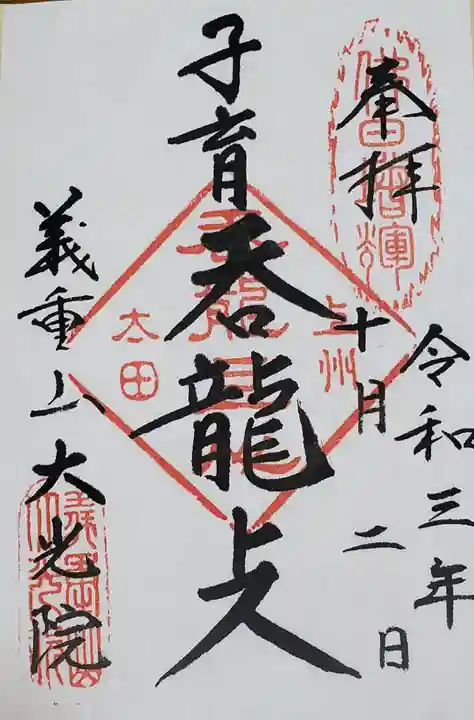 奉拝
令和三年
十月二日
子育呑龍上人
上州
太田
義重山大光院